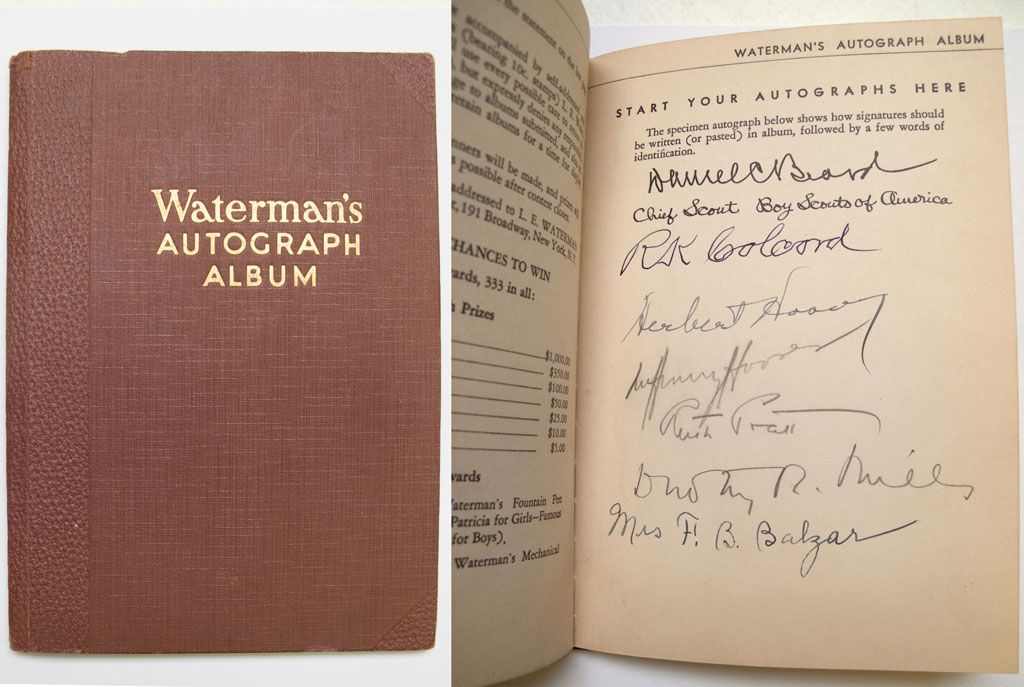 Waterman's
AUTOGRAPH
ALBUM
the statement on the
accompanied by self-addressed
(bearing 10c. stamps) L. E.
use every possible care to
, but expressly denies any
to albums submitted, and
retain albums for a time for
nners will be made, and prizes will
possible after contest closes.
addressed to L. E. WATERMAN
191 Broadway, New York, N.Y.
CHANCES TO WIN
ards, 333 in all:
Prizes
$1,000.00
$350.00
$100.00
$50.00
$25.00
$10.00
$5.00
wards
Waterman's Fountain Pen
Patricia for Girls—Famous
for Boys).
Waterman's Mechanical
WATERMAN'S AUTOGRAPH ALBUM
START YOUR AUTOGRAPHS HERE
The specimen autograph below shows how signatures should
be written (or pasted) in album, followed by a few words of
identification.
Daniel C Beard
Chief Scout Boy Scouts of America
R K Colcord
Herbert Hoover
Hoover
Ruth Pratt
Dorothy R. Mills
Mrs F. B. Balzar